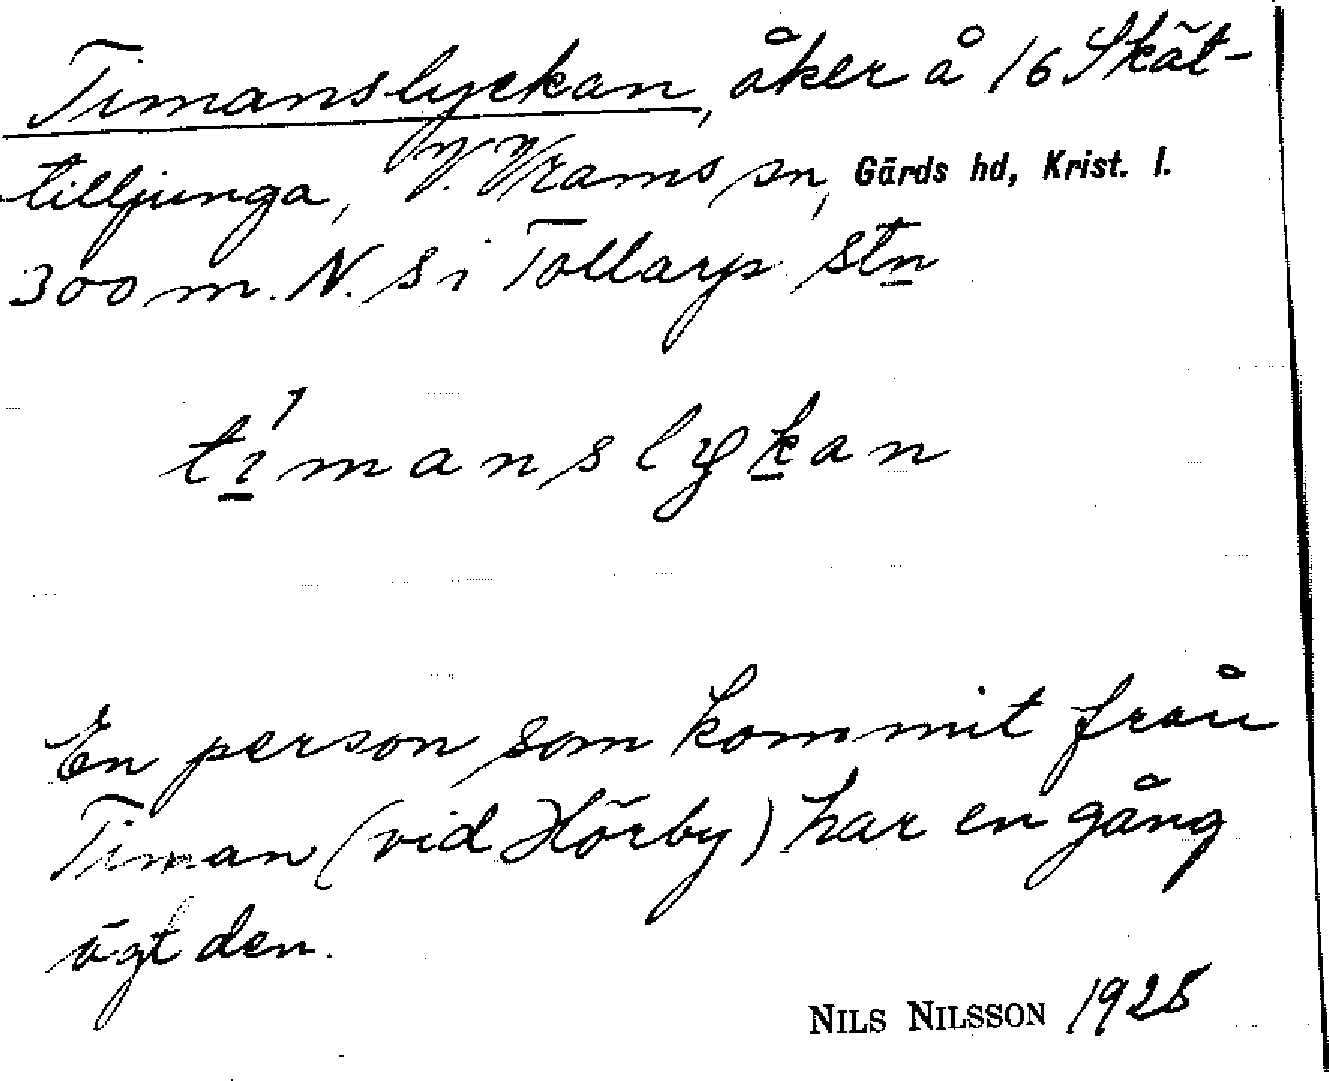 Timanslyckan, åker å 16 Skät-
tilljunga, V. Vrams sn, Gärds hd, Krist. l.
300 m. N. s i Tollarps stn
timanslykan
En person som kommit från
Timan (vid Hörby) har en gång
ägt den.
NILS NILSSON 1928